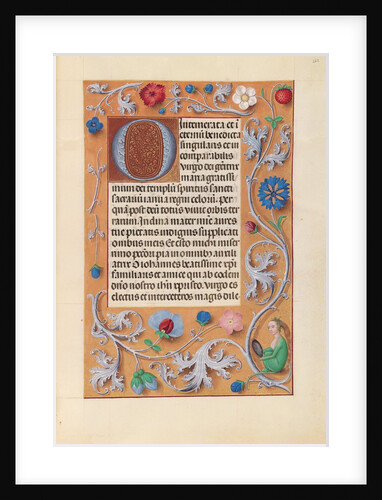 O Intemerata et i
eternū benedicta
singularis et in
comparabilis
virgo dei genitrix
maria gratissi
mum dei templū spiritus sancti
sacrariū ianua regni celorū. Per
quā post deū totus vivit orbis ter
rarum. Inclina mater mie aures
tue pietatis indignis supplicati
onibus meis et esto michi miser
rimo pctōri pia in omnibz auxili
atrix O Iohannes beatissime xp̄i
familiaris et amice qui ab eodem
dn̄o nostro ih̄u xp̄isto. virgo es
electus et inter ceteros magis dile